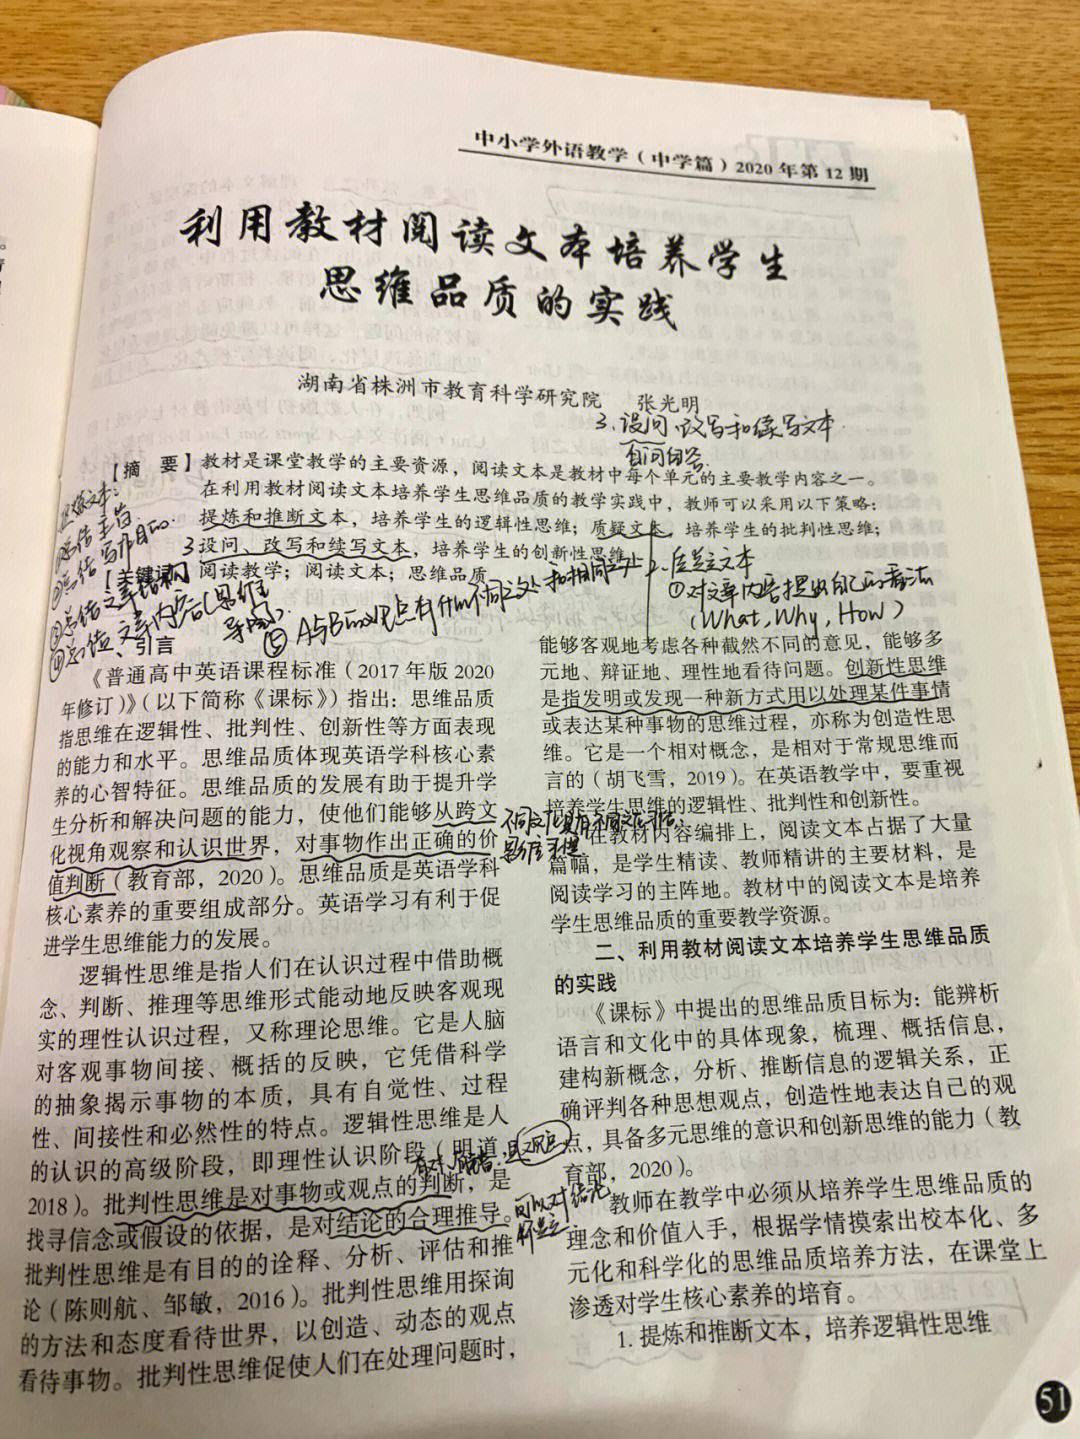 中小学外语教学（中学篇）2020年第12期
利用教材阅读文本培养学生
思维品质的实践
湖南省株洲市教育科学研究院 张光明
3.设问、改写和续写文本.
自问自答
【摘 要】教材是课堂教学的主要资源，阅读文本是教材中每个单元的主要教学内容之一。
在利用教材阅读文本培养学生思维品质的教学实践中，教师可以采用以下策略：
提炼和推断文本，培养学生的逻辑性思维；质疑文本，培养学生的批判性思维；
3设问、改写和续写文本，培养学生的创新性思维
【关键词】阅读教学；阅读文本；思维品质
①总结主旨
②总结写作目的
③总结文章结构
④总结文章内容(思维
导图)
⑤A与B的观点有什么不同之处和相同之处
2.质疑文本
①对文章内容提出自己的看法
(What, Why, How)
一、引言
《普通高中英语课程标准（2017年版2020
年修订）》（以下简称《课标》）指出：思维品质
指思维在逻辑性、批判性、创新性等方面表现
的能力和水平。思维品质体现英语学科核心素
养的心智特征。思维品质的发展有助于提升学
生分析和解决问题的能力，使他们能够从跨文
化视角观察和认识世界，对事物作出正确的价
值判断（教育部，2020）。思维品质是英语学科
核心素养的重要组成部分。英语学习有利于促
进学生思维能力的发展。
逻辑性思维是指人们在认识过程中借助概
念、判断、推理等思维形式能动地反映客观现
实的理性认识过程，又称理论思维。它是人脑
对客观事物间接、概括的反映，它凭借科学
的抽象揭示事物的本质，具有自觉性、过程
性、间接性和必然性的特点。逻辑性思维是人
的认识的高级阶段，即理性认识阶段（明道，
2018）。批判性思维是对事物或观点的判断，是
找寻信念或假设的依据，是对结论的合理推导。
批判性思维是有目的的诠释、分析、评估和推
论（陈则航、邹敏，2016）。批判性思维用探询
的方法和态度看待世界，以创造、动态的观点
看待事物。批判性思维促使人们在处理问题时，
能够客观地考虑各种截然不同的意见，能够多
元地、辩证地、理性地看待问题。创新性思维
是指发明或发现一种新方式用以处理某件事情
或表达某种事物的思维过程，亦称为创造性思
维。它是一个相对概念，是相对于常规思维而
言的（胡飞雪，2019）。在英语教学中，要重视
培养学生思维的逻辑性、批判性和创新性。
在教材内容编排上，阅读文本占据了大量
篇幅，是学生精读、教师精讲的主要材料，是
阅读学习的主阵地。教材中的阅读文本是培养
学生思维品质的重要教学资源。
二、利用教材阅读文本培养学生思维品质
的实践
《课标》中提出的思维品质目标为：能辨析
语言和文化中的具体现象，梳理、概括信息，
建构新概念，分析、推断信息的逻辑关系，正
确评判各种思想观点，创造性地表达自己的观
点，具备多元思维的意识和创新思维的能力（教
育部，2020）。
可以对结论
质疑
教师在教学中必须从培养学生思维品质的
理念和价值入手，根据学情摸索出校本化、多
元化和科学化的思维品质培养方法，在课堂上
渗透对学生核心素养的培育。
1. 提炼和推断文本，培养逻辑性思维
51